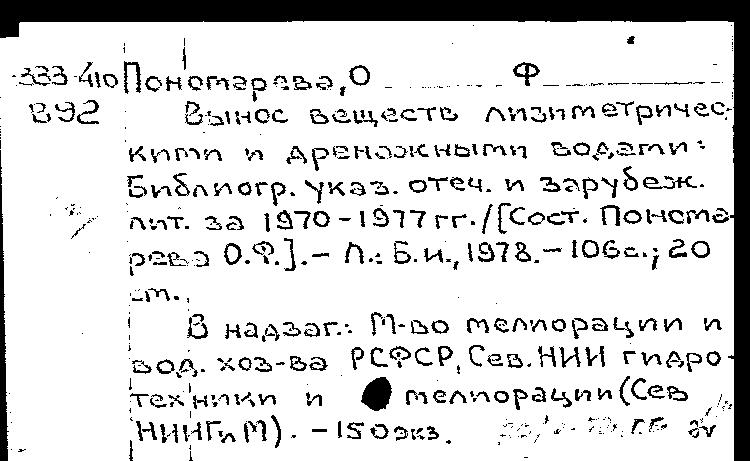 333-410 Пономарева, О Ф
В92 Вынос веществ лизиметричес-
кими и дренажными водами:
Библиогр. указ. отеч. и зарубеж.
лит. за 1970-1977 гг. / [Сост. Понома-
рева О.Ф.]. - Л.: Б.и., 1978. - 106с.; 20
см.
В надзаг.: М-во мелиорации и
вод. хоз-ва РСФСР, Сев. НИИ гидро-
техники и мелиорации (Сев
НИИГиМ). - 150 экз.